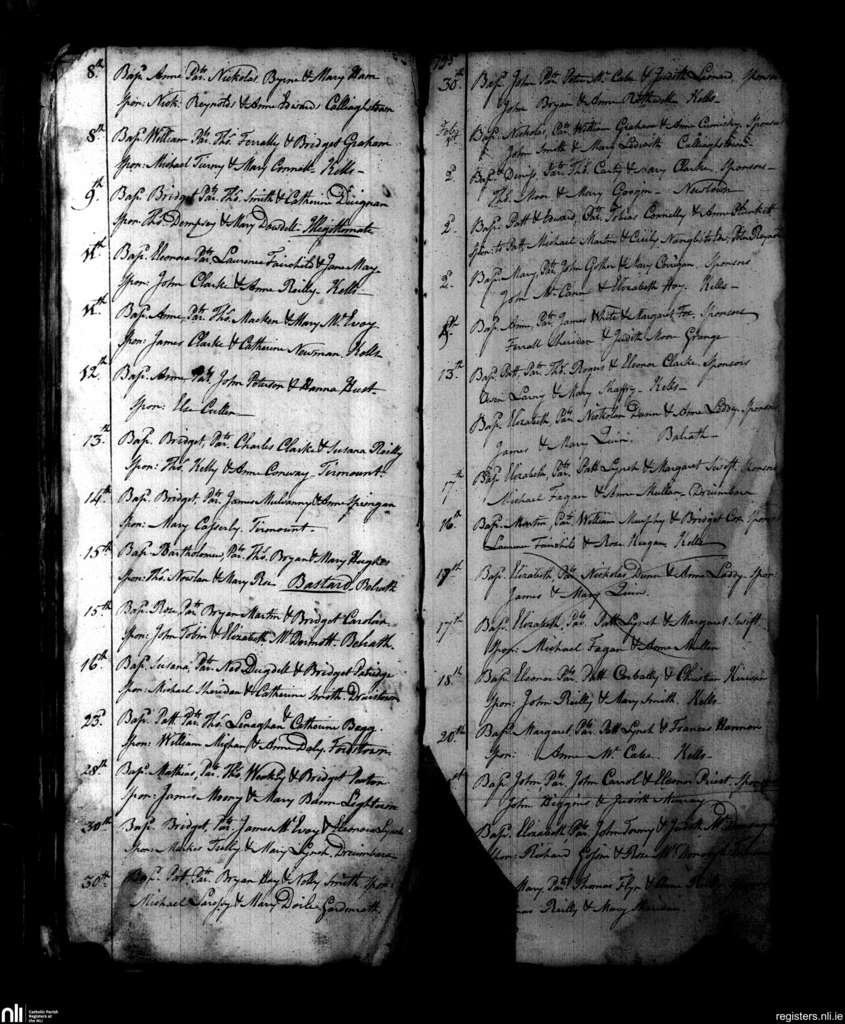 8th Bap. Anne, Par. Nickolas Byrne & Mary Ham
Spon: Nick: Reynolds & Anne Edward Calliaghstown
8th Bap. William Par. Tho. Ferrally & Bridget Graham
Spon: Michael Tierny & Mary Connell Kells
9th Bap. Bridget Par. Tho. Smith & Catherine Duignan
Spon: Tho. Dempsey & Mary Dowdell Illegittemate
11th Bap. Eleonora Par. Laurence Fairchild & Jane May
Spon: John Clarke & Anne Reilly Kells
11th Bap. Anne, Par. Tho. Macken & Mary McEvoy
Spon: James Clarke & Catherine Newman Kells
12th Bap. Anne Par. John Peterson & Hanna Hust
Spon: Else Cullen
13th Bap. Bridget, Par. Charles Clarke & Susana Reilly
Spon: Tho. Kelly & Anne Conway Tirmount
14th Bap. Bridget, Par. James Mulvanny & Anne
Spon: Mary Casserly. Tirmount
15th Bap. Bartholomew, Par. Tho. Bryan & Mary Hughes
Spon: Tho. Nowlan & Mary Bastard. Belrath
15th Bap. Rose, Par. Bryan Martin & Bridget Carolan
Spon: John Tobin & Elizabeth McDermott Belrath.
16th Bap. Susana, Par. Ned Dugdell & Bridget Patridge
Spon: Michael Sheridan & Catherine Smith
23. Bap. Patt Par. Tho. Lenaghan & Catherine Begg
Spon: William & Anne Daly. Fordstown
28th Bap. Mathias, Par. Tho. Weekly & Bridget
Spon: James Moony & Mary Lightown
30th Bap. Bridget, Par. James McEvoy & Eleonora Lynch
Spon: Tully & Mary Lynch, Drumbara
30th Bap. Pat, Par. Bryan Hay & Nelly Smith Spon:
Michael & Mary Doile
30th Bap. John, Par. Peter McCabe & Judith Leonard, Sponsors
John Bryan & Anne Rothwell Kells
Bap. Nicholas, Par. William Graham & Anne Sponsors
John Smith & Mary Ledwith Calliaghstown
2. Bap. Denis, Par. Tho. Canty & Mary Clarke. Sponsors
Tho. Moon & Mary Newtown
2. Bap. Patt & Edward, Par. Tobias Connelly & Anne Plunkett
Spon: to Patt Michael Martin & Cicily
2. Bap. Mary, Par. John & Mary Corrigan. Sponsors
John McCann & Elizabeth Hoy. Kells
Bap. Anne, Par. James White & Margaret Fox. Sponsors
Ferrall Sheridan & Judith Moon Grange
13th Bap. Patt, Par. Tho. Rogers & Eleonor Clarke. Sponsors
Owen Larny & Mary Kells
Bap. Elizabeth, Par. Nicholas Dunn & Anne Leddy. Sponsors
James & Mary Quin. Balrath
17th Bap. Elizabeth, Par. Patt Lynch & Margaret Swift. Sponsors
Michael Fagan & Anne Mullen Drumbara
16th Bap. Martin, Par. William Murphy & Bridget Cox Sponsors
Laurence Fairchild & Rose Keegan Kells
17th Bap. Elizabeth, Par. Nicholas Dunn & Anne Laddy Spon
James & Mary Quin.
17th Bap. Elizabeth, Par. Patt Lynch & Margaret Swift.
Spon: Michael Fagan & Anne Mullen
18th Bap. Eleonor Par. Patt Corbally & Christian
Spon: John Reilly & Mary Smith. Kells
20th Bap. Margaret, Par. Patt Lynch & Frances Hannon
Spon: Anne McCabe. Kells
Bap. John, Par. John Carrol & Eleonor Priest. Sponsors
John Higgins & Judith Murray
Bap. Elizabeth Par. John & Judith
Spon: Richard & Rose McDonogh
Mary, Par. Thomas Flyn & Anne Reilly
Reilly & Mary Sheridan.
nli
Catholic Parish
Registers at
the NLI
registers.nli.ie